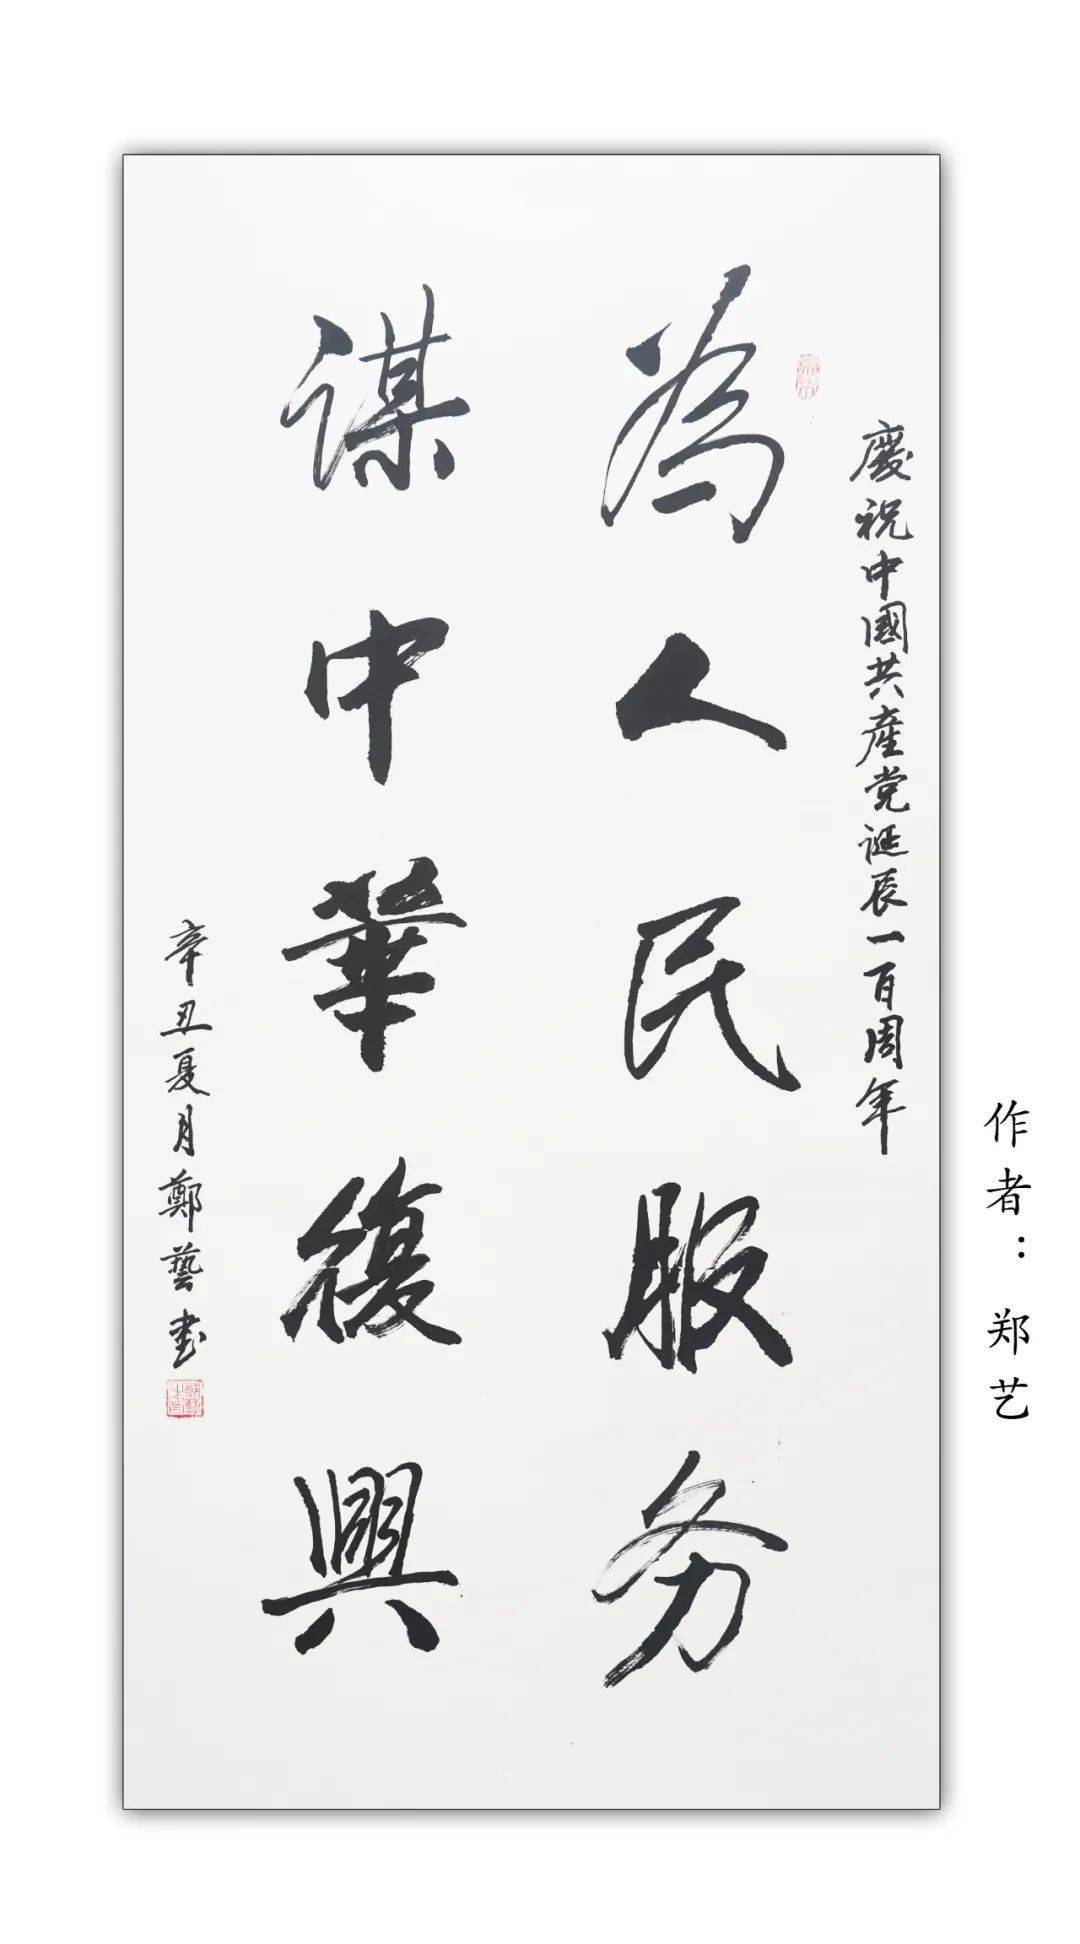 慶祝中國共產党誕辰一百周年
為人民服务
謀中華復興
辛丑夏月鄭藝书
作者：郑艺